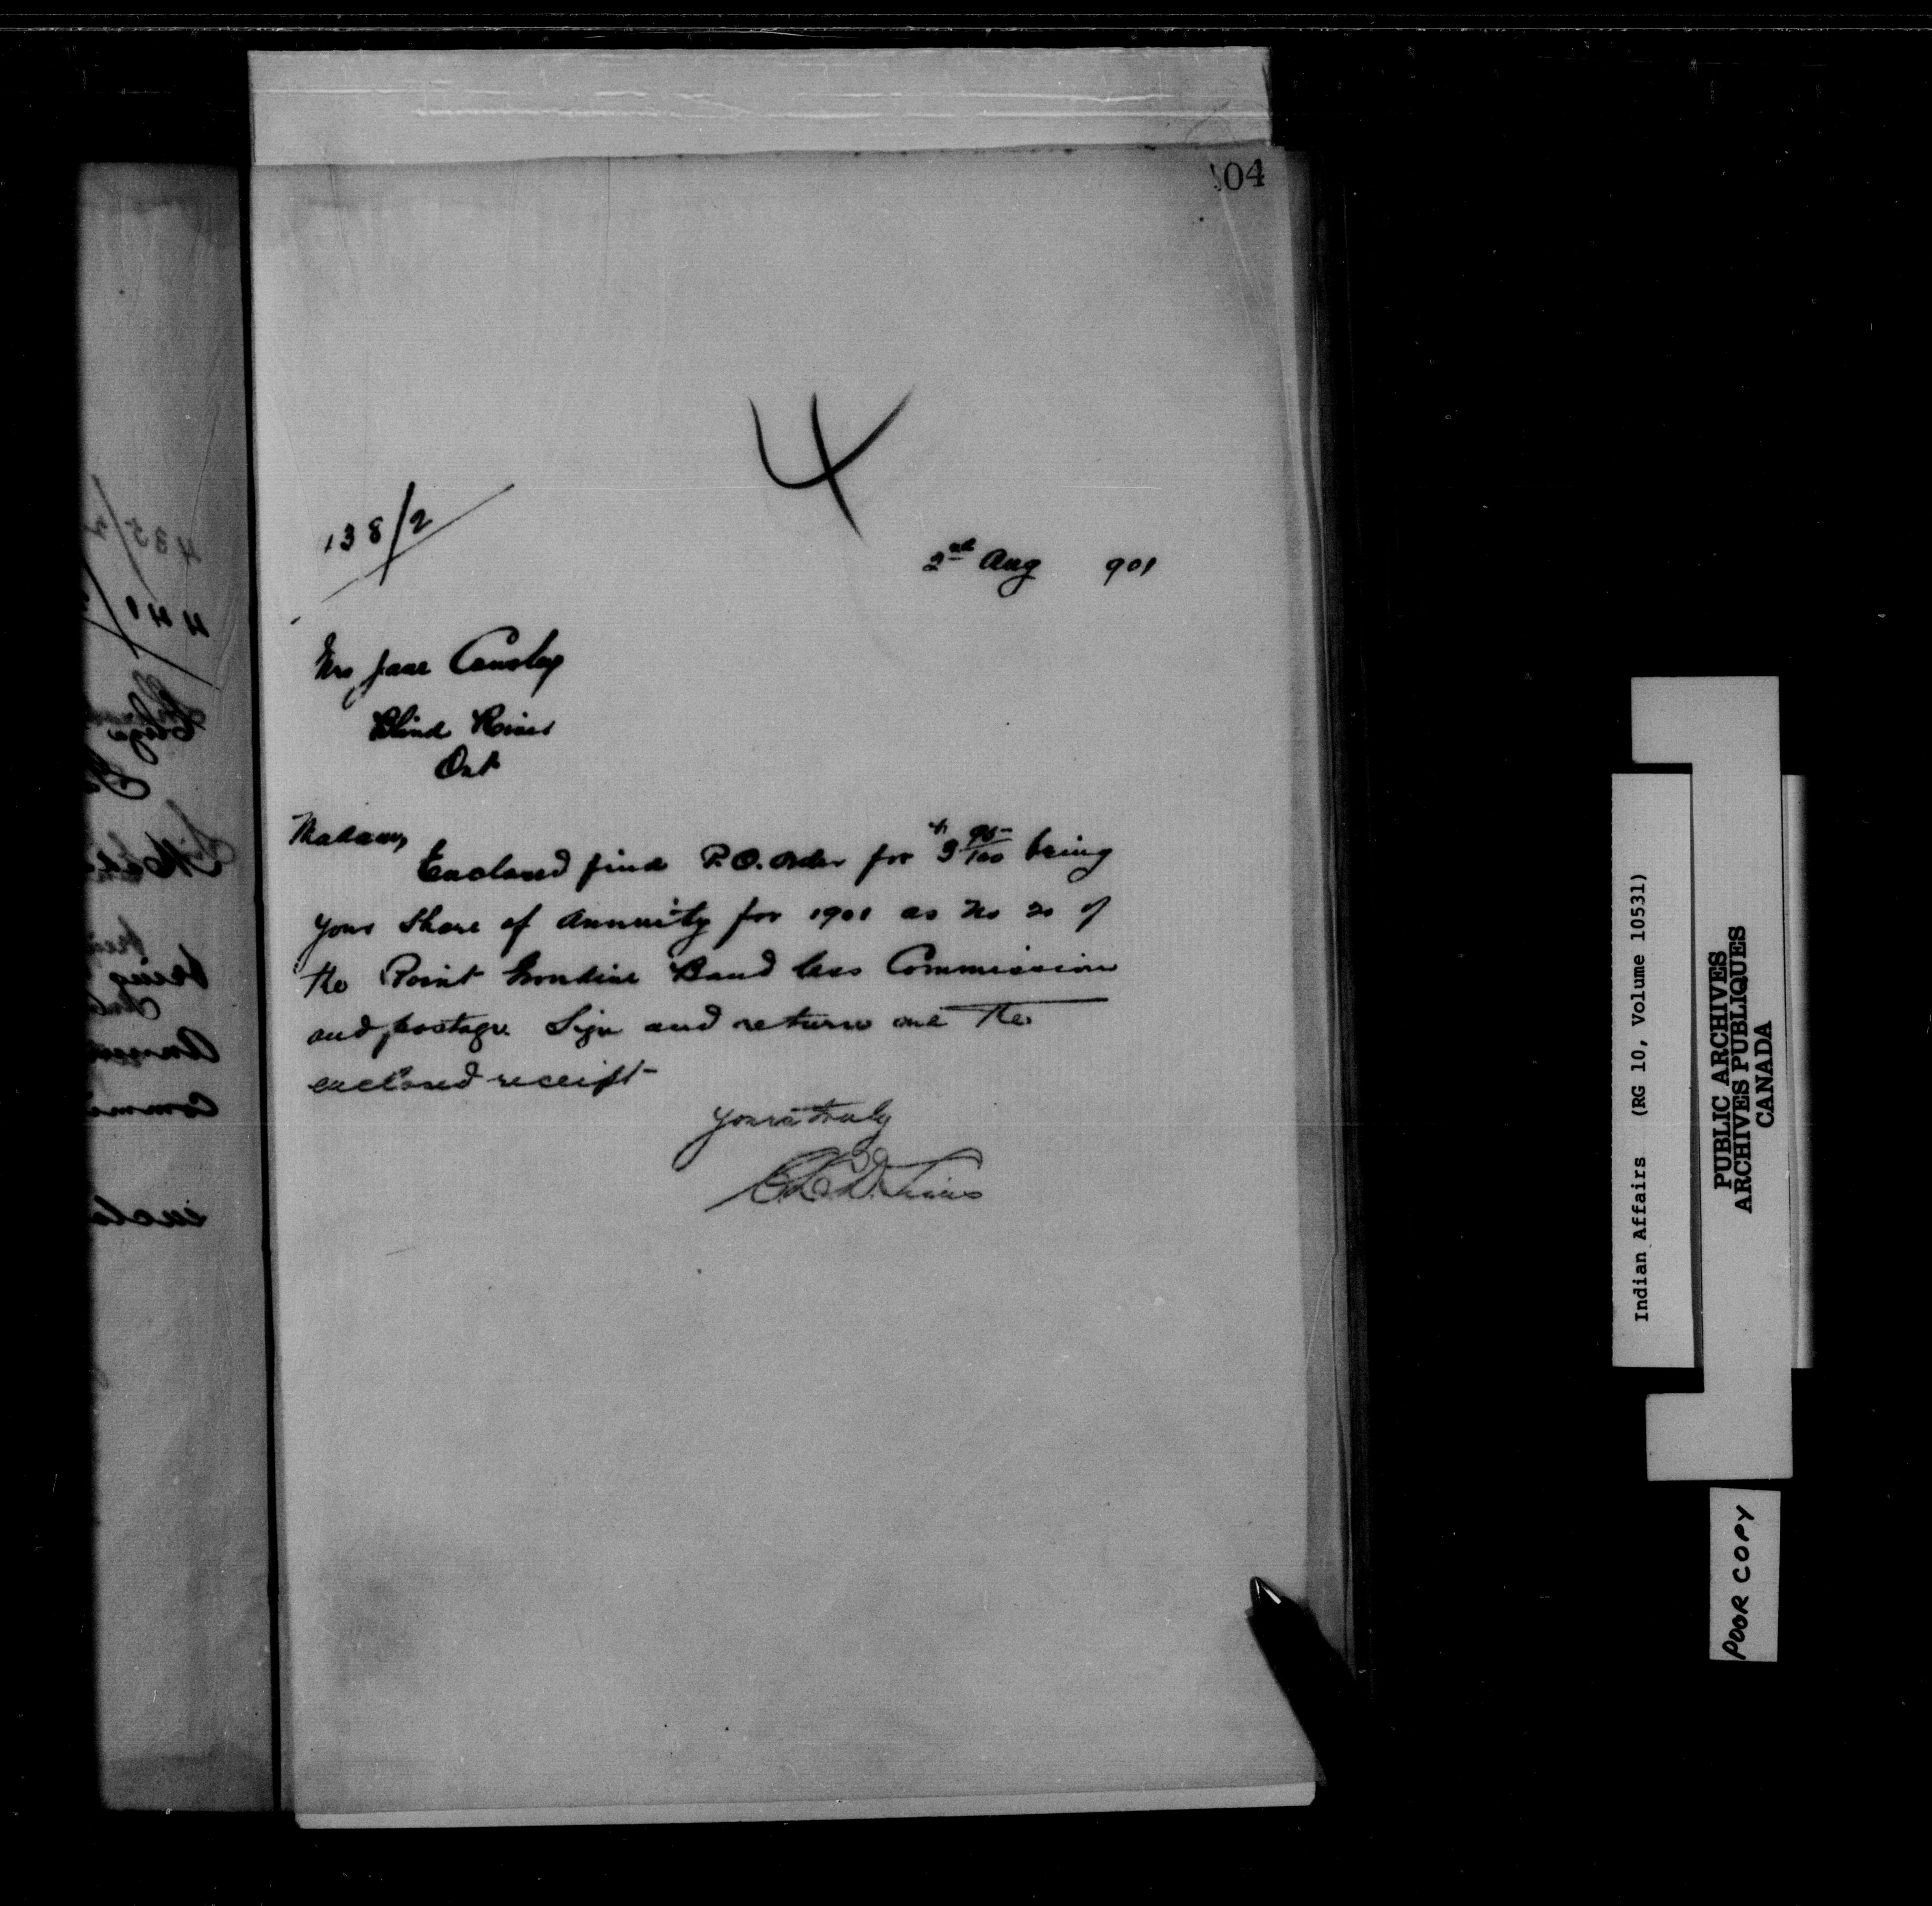 04
4
138/2
2nd Aug 901
Mrs Jane
Blind River
Ont
Madam,
Enclosed find P.O. Order for $3 95/100 being
your Share of Annuity for 1901 as No 20 of
the Point Grondine Band less Commission
and postage. Sign and return me the
enclosed receipt
Yours truly
Indian Affairs (RG 10, Volume 10531)
PUBLIC ARCHIVES
ARCHIVES PUBLIQUES
CANADA
POOR COPY